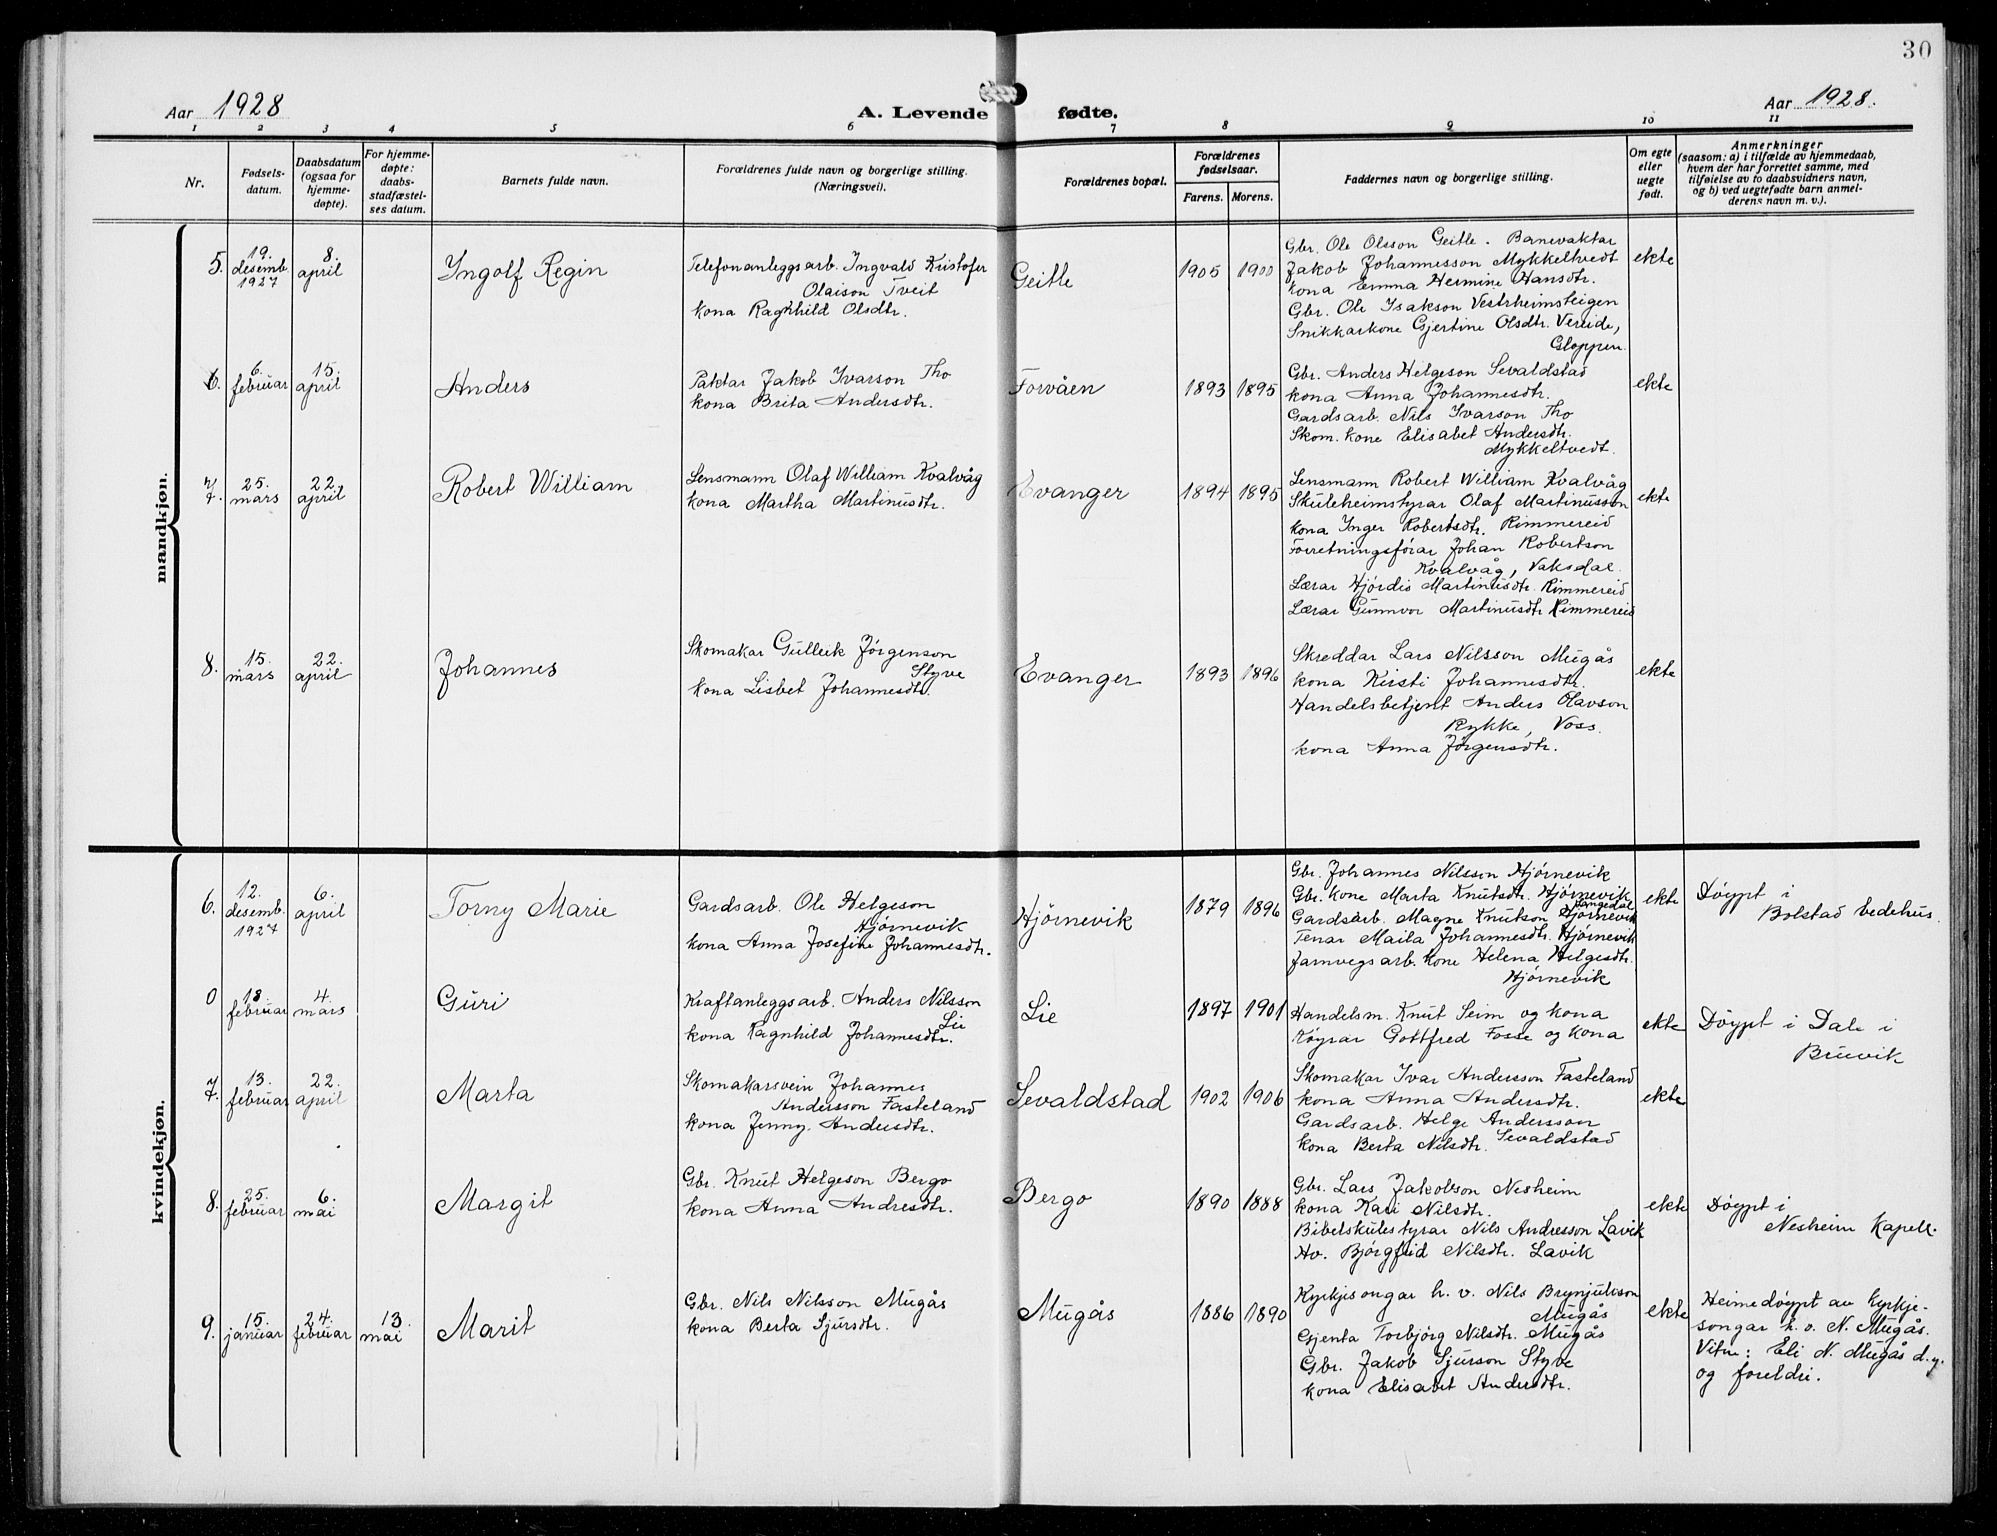 30
Aar 1928
A. Levende fødte.
Aar 1928.
1 2 3 4 5 6 7 8 9 10 11
Nr.
Fødsels-
datum.
Daabsdatum
(ogsaa for
hjemme-
døpte).
For hjemme-
døpte:
daabs-
stadfæstel-
ses datum.
Barnets fulde navn.
Forældrenes fulde navn og borgerlige stilling.
(Næringsvei).
Forældrenes bopæl.
Forældrenes
fødselsaar.
Farens. Morens.
Faddernes navn og borgerlige stilling.
Om egte
eller
uegte
født.
Anmerkninger
(saasom: a) i tilfælde av hjemmedaab,
hvem der har forrettet samme, med
tilføielse av to daabsvidners navn,
og b) ved uegtefødte barn anmel-
derens navn m. v.).
mandkjøn.
5.
19.
desemb.
1927
8.
april
Ingolf Regin
Telefonanleggsarb. Ingvald Kristofer
Olaison Tveit
kona Ragnhild Olsdtr.
Geitle
1905
1900
Gbr. Ole Olsson Geitle. Banevaktar
Jakob Johannesson Mykkeltvedt
kona Emma Hermine Hansdtr.
Gbr. Ole Isakson Vestrheimsteigen
Snikkarkone Gjertine Olsdtr. Vereide,
Gloppen.
ekte
6.
6.
februar
15.
april
Anders
Paktar Jakob Ivarson Tho
kona Brita Andersdtr.
Forvåen
1893
1895
Gbr. Anders Helgeson Sevaldstad
kona Anna Johannesdtr.
Gardsarb. Nils Ivarson Tho
Skom. kone Elisabet Andersdtr.
Mykkeltvedt.
ekte
7.
25.
mars
22.
april
Robert William
Lensmann Olaf William Kvalvåg
kona Martha Martinusdtr.
Evanger
1894
1895
Lensmann Robert William Kvalvåg
Skuleheimstyrar Olaf Martinusson
kona Inger Robertsdtr. Rimmereid
Forretningsførar Johan Robertson
Kvalvåg, Vaksdal.
Lærar Hjördis Martinusdtr. Rimmereid
Lærar Gunnvor Martinusdtr Rimmereid
ekte
8.
15.
mars
22.
april
Johannes
Skomakar Gulleik Jørgenson
Styve
kona Lisbet Johannesdtr.
Evanger
1893
1896
Skreddar Lars Nilsson Mugås
kona Kirsti Johannesdtr.
Handelsbetjent Anders Olavson
Rykke, Voss.
kona Anna Jørgensdtr.
ekte
kvindekjøn.
6.
12.
desemb.
1927
6.
april
Torny Marie
Gardsarb. Ole Helgeson
Hjørnevik
kona Anna Josefine Johannesdtr.
Hjørnevik
1879
1896
Gbr. Johannes Nilsson Hjørnevik
Gbr. kone Marta Knutsdtr. Hjørnevik
Gardsarb. Magne Knutson Hjørnevik
Tenar Maila Johannesdtr. Hjørnevik
Jarnvegsarb. kone Helena Helgesdtr.
Hjørnevik
ekte
Døypt i
Bolstad bedehus.
0
18.
februar
4.
mars
Guri
Kraftanleggsarb. Anders Nilsson
Lie
kona Ragnhild Johannesdtr.
Lie
1897
1901
Handelsm. Knut Seim og kona
Køyrar Gottfred Fosse og kona
ekte
Døypt i Dale i
Bruvik
7.
13.
februar
22.
april
Marta
Skomakarsvein Johannes
Andersson Fasteland
kona Jenny Andersdtr.
Sevaldstad
1902
1906
Skomakar Ivar Andersson Fasteland
kona Anna Andersdtr.
Gardsarb. Helge Andersson
Sevaldstad
kona Berta Nilsdtr.
ekte
8.
25.
februar
6.
mai
Margit
Gbr. Knut Helgeson Bergo
kona Anna Andresdtr.
Bergo
1890
1888
Gbr. Lars Jakobson Nesheim
kona Kari Nilsdtr.
Bibelskulestyrar Nils Andresson Lavik
Hv. Bjørgfrid Nilsdtr. Lavik
ekte
Døypt i
Nesheim Kapell.
9.
15.
januar
24.
februar
13.
mai
Marit
Gbr. Nils Nilsson Mugås
kona Berta Sjursdtr.
Mugås
1886
1890
Kyrkjesongar h. v. Nils Brynjulvson
Mugås
Gjenta Torbjørg Nilsdtr. Mugås
Gbr. Jakob Sjurson Styve
kona Elisabet Andersdtr.
ekte
Heimedøypt av Kyrkje-
songar h. v. N. Mugås.
Vitne: Eli N. Mugås d. y.
og foreldri.